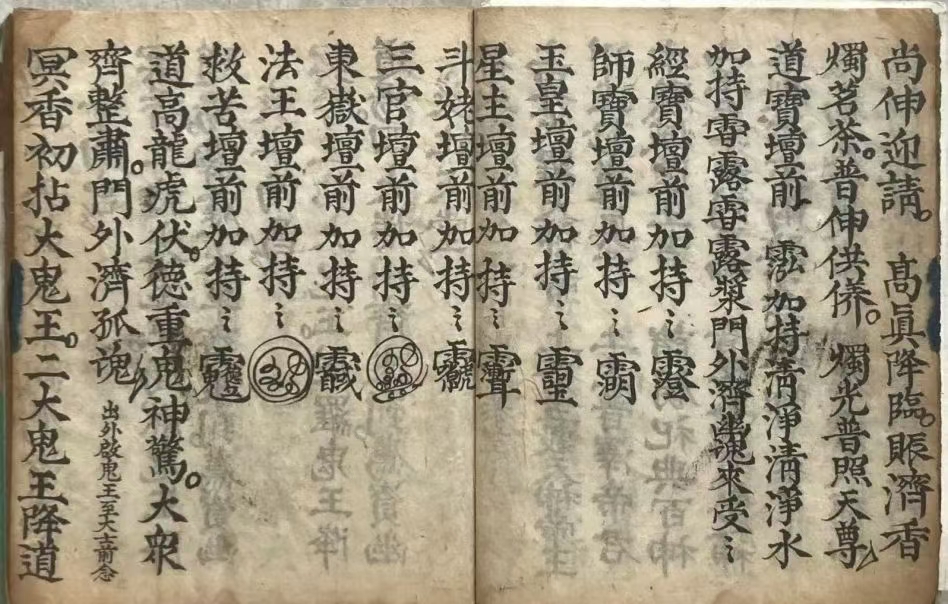 尚伸迎請。 高眞降臨。賬濟香
燭茗茶。普伸供养。 燭光普照天尊
道寶壇前 加持清淨清淨水
加持露露漿門外濟幽魂來受〻
經寶壇前加持〻
師寶壇前加持〻
玉皇壇前加持〻
星主壇前加持〻
斗姥壇前加持〻
三官壇前加持〻
東嶽壇前加持〻
法王壇前加持〻
救苦壇前加持〻
道高龍虎伏。德重鬼神驚。大眾
齊整肅。門外濟孤魂 出外啟鬼王至大士前念
冥香初拈大鬼王。二大鬼王降道